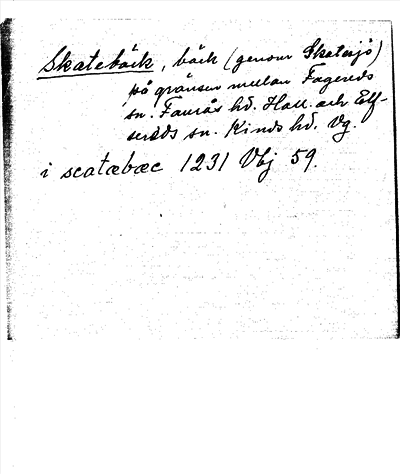 Skatebäck, bäck (genom Skatesjö)
på gränsen mellan Fagereds
sn. Faurås hd. Hall. och Elf-
sereds sn. Kinds hd. Vg.
i scatæbæc 1231 Vbj 59.